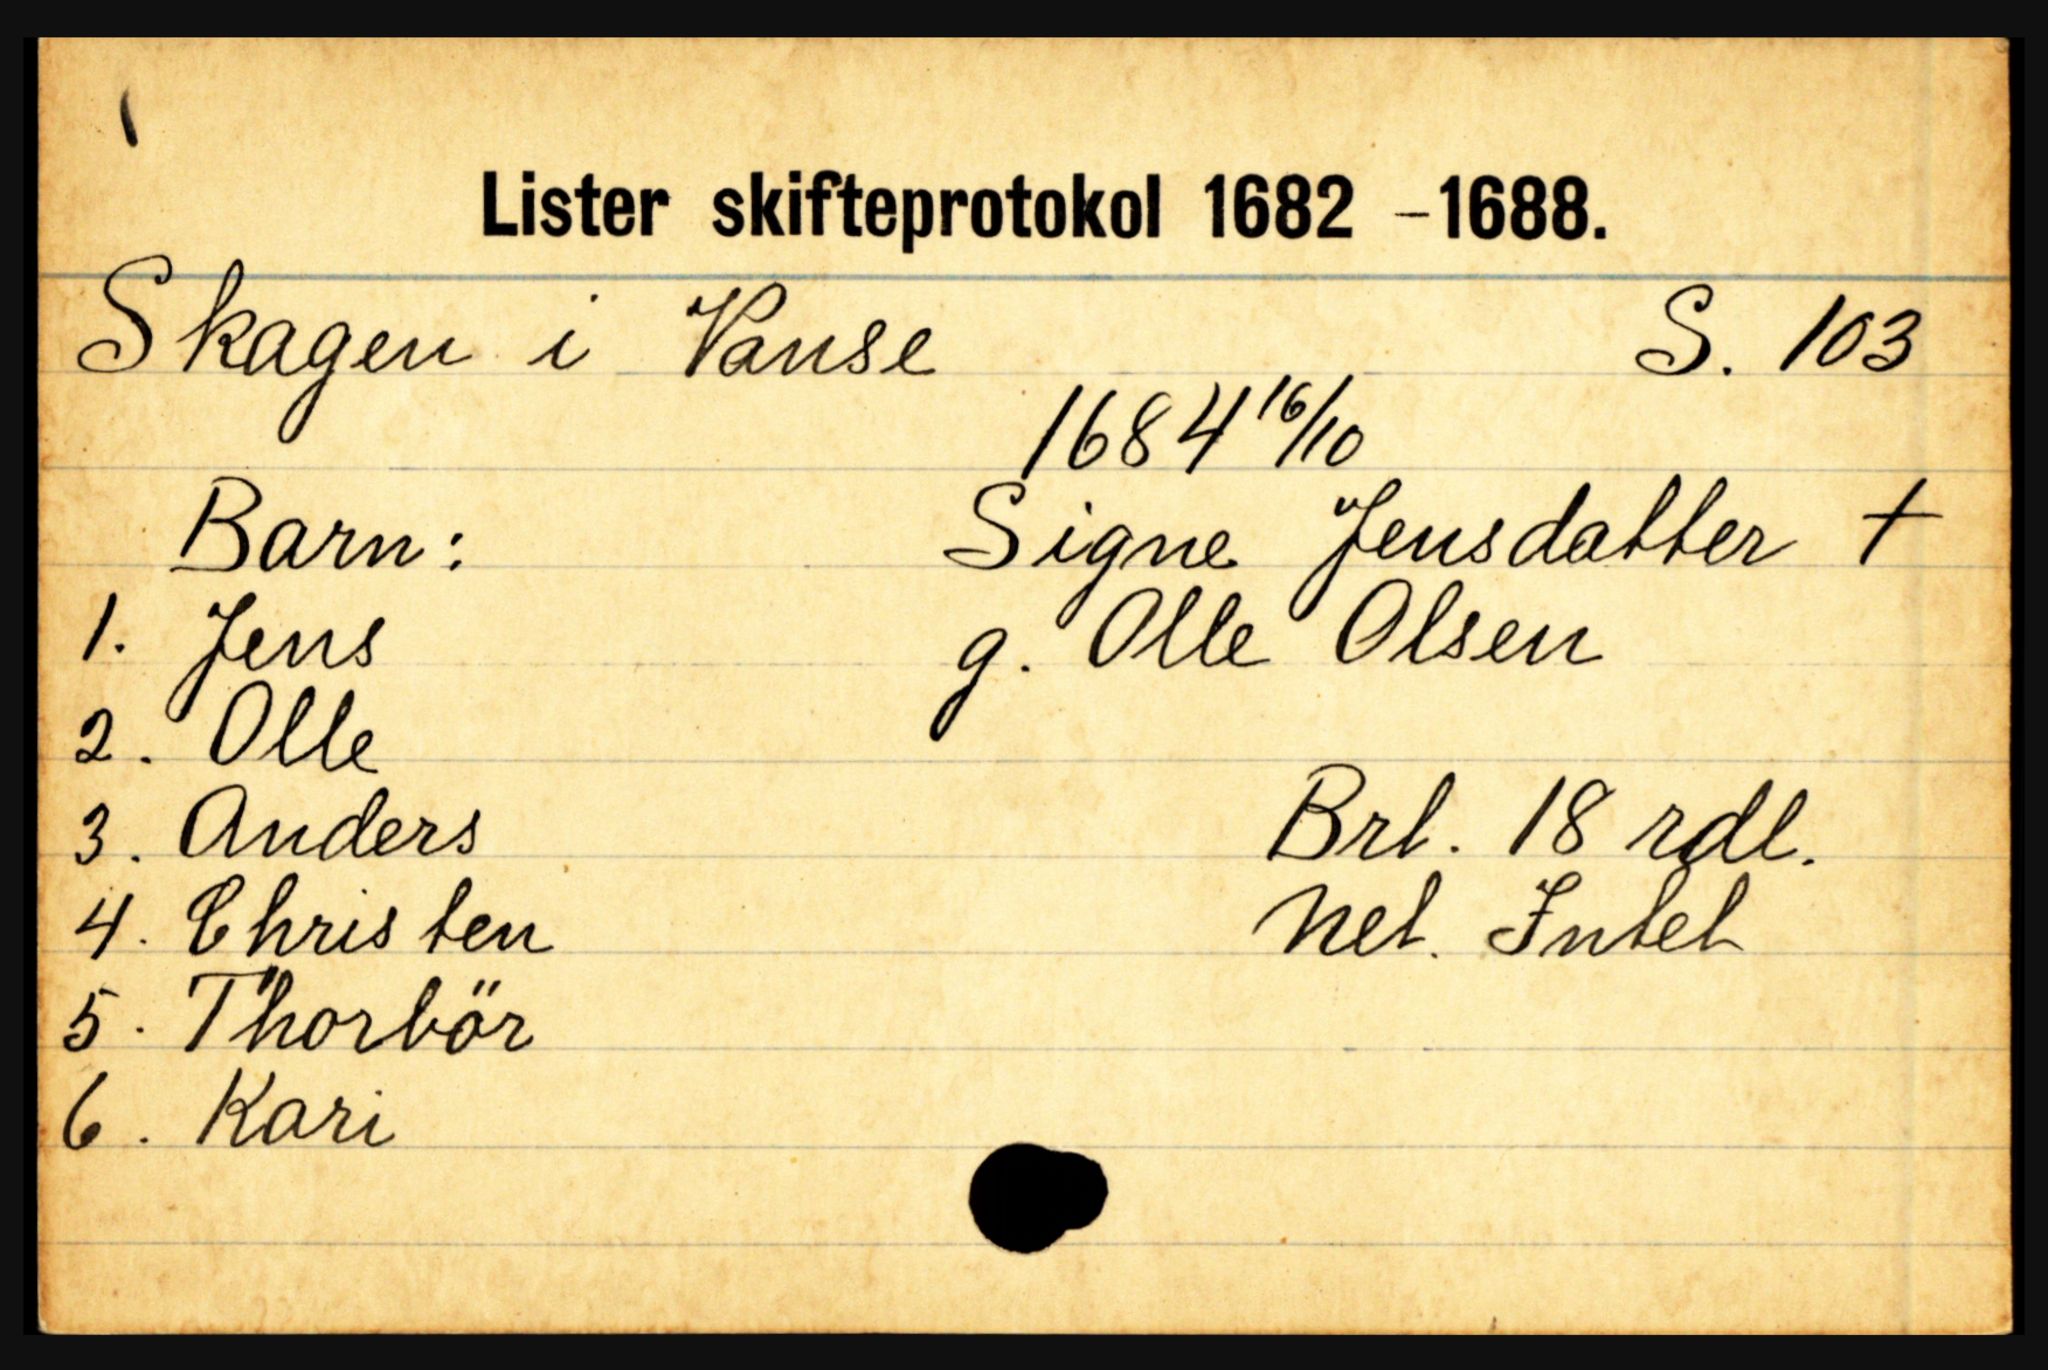 Lister skifteprotokol 1682 - 1688.
Skagen i Vanse S. 103
1684 16/10
Barn: Signe Jensdatter †
1. Jens g. Olle Olsen
2. Olle
3. Anders Brt. 18 rdl.
4. Christen Net. Intet
5. Thorbör
6. Kari